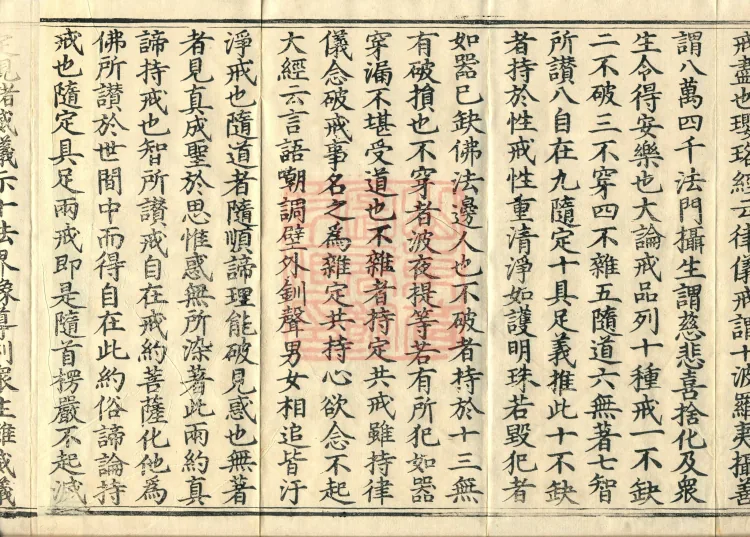 戒盡也瓔珞經云律儀戒謂十波羅夷攝善
謂八萬四千法門攝生謂慈悲喜捨化及衆
生令得安樂也大論戒品列十種戒一不缺
二不破三不穿四不雜五隨道六無著七智
所讃八自在九隨定十具足義推此十不缺
者持於性戒性重清淨如護明珠若毀犯者
如器已缺佛法邊人也不破者持於十三無
有破損也不穿者波夜提等若有所犯如器
穿漏不堪受道也不雜者持定共戒雖持律
儀念破戒事名之爲雜定共持心欲念不起
大經云言語嘲調壁外釧聲男女相追皆汙
淨戒也隨道者隨順諦理能破見惑也無著
者見真成聖於思惟惑無所染著此兩約真
諦持戒也智所讃戒自在戒約菩薩化他爲
佛所讃於世間中而得自在此約俗諦論持
戒也隨定具足兩戒即是隨首楞嚴不起滅
定現諸威儀示十法界像導利衆生雖威儀